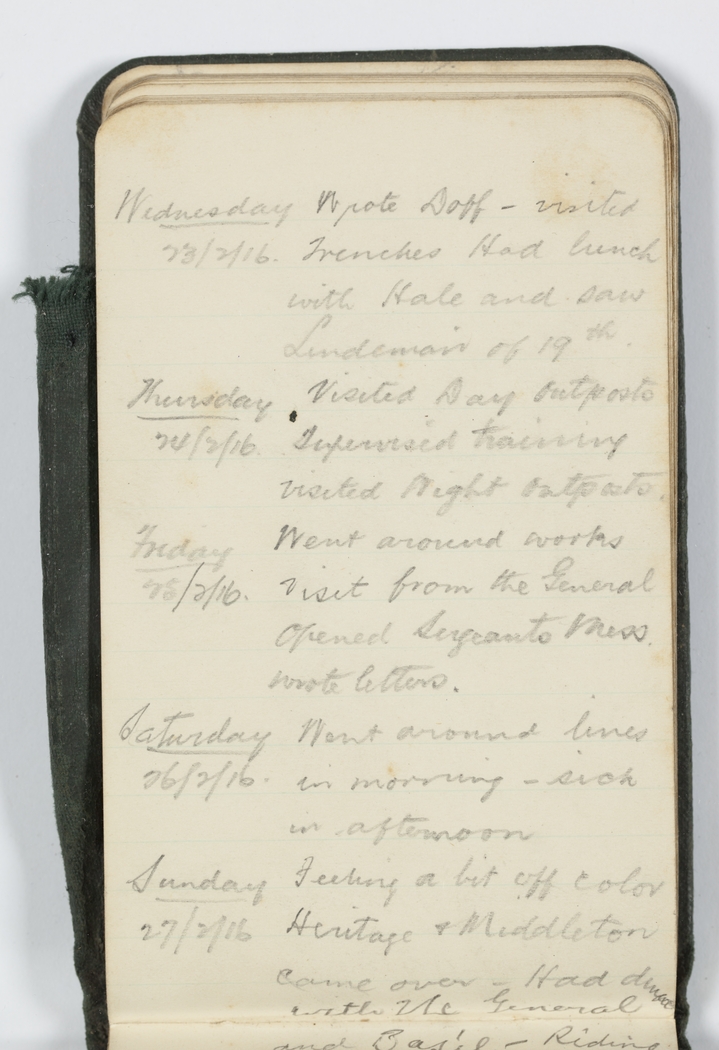 Wednesday Wrote Doff - visited
23/2/16. Trenches Had lunch
with Hale and saw
Lindeman of 19th.
Thursday Visited Day Outposts
24/2/16. Supervised training
visited Night Outposts.
Friday Went around works
25/2/16. Visit from the General
Opened Sergeants Mess.
wrote letters.
Saturday Went around lines
26/2/16. in morning - sick
in afternoon
Sunday Feeling a bit off color
27/2/16 Heritage & Middleton
came over - Had
with the General
and - Riding